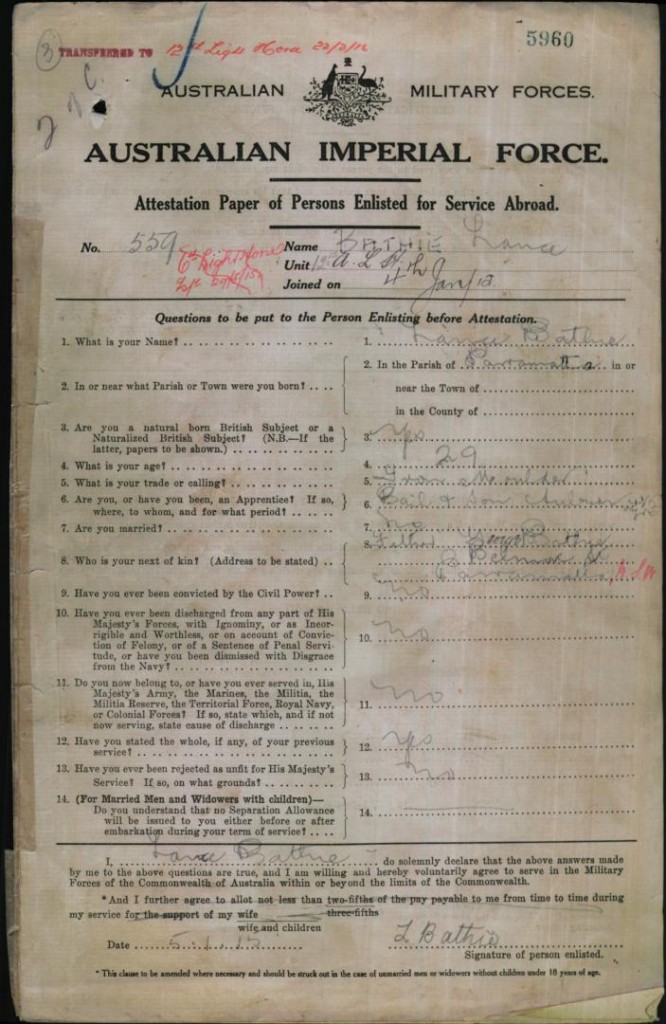 3 TRANSFERRED TO 12th Light Horse 22/2/16
5960
AUSTRALIAN MILITARY FORCES.
AUSTRALIAN IMPERIAL FORCE.
Attestation Paper of Persons Enlisted for Service Abroad.
No. 559 Name BATHIE Lance
6th Light Horse Unit 12th A. L. H.
Joined on 4th Jan/15
Questions to be put to the Person Enlisting before Attestation.
1. What is your Name? 1. Lance Bathie
2. In or near what Parish or Town were you born? 2. In the Parish of Paramatta in or
near the Town of
in the County of
3. Are you a natural born British Subject or a
Naturalized British Subject? (N.B.—If the
latter, papers to be shown.) 3. Yes
4. What is your age? 4. 29
5. What is your trade or calling? 5. Iron Moulder
6. Are you, or have you been, an Apprentice? If so,
where, to whom, and for what period? 6. & Son
7. Are you married? 7. No
8. Who is your next of kin? (Address to be stated) 8. Father George Bathie
Parramatta, N.S.W
9. Have you ever been convicted by the Civil Power? 9. No
10. Have you ever been discharged from any part of His
Majesty's Forces, with Ignominy, or as Incor-
rigible and Worthless, or on account of Convic-
tion of Felony, or of a Sentence of Penal Servi-
tude, or have you been dismissed with Disgrace
from the Navy? 10. No
11. Do you now belong to, or have you ever served in, His
Majesty's Army, the Marines, the Militia, the
Militia Reserve, the Territorial Force, Royal Navy,
or Colonial Forces? If so, state which, and if not
now serving, state cause of discharge 11. No
12. Have you stated the whole, if any, of your previous
service? 12. Yes
13. Have you ever been rejected as unfit for His Majesty's
Service? If so, on what grounds? 13. No
14. (For Married Men and Widowers with children)—
Do you understand that no Separation Allowance
will be issued to you either before or after
embarkation during your term of service? 14.
I, Lance Bathie do solemnly declare that the above answers made
by me to the above questions are true, and I am willing and hereby voluntarily agree to serve in the Military
Forces of the Commonwealth of Australia within or beyond the limits of the Commonwealth.
*And I further agree to allot not less than two-fifths of the pay payable to me from time to time during
three-fifths
my service for the support of my wife
wife and children
Date 5.1.15 L Bathie
Signature of person enlisted.
* This clause to be amended where necessary and should be struck out in the case of unmarried men or widowers without children under 18 years of age.